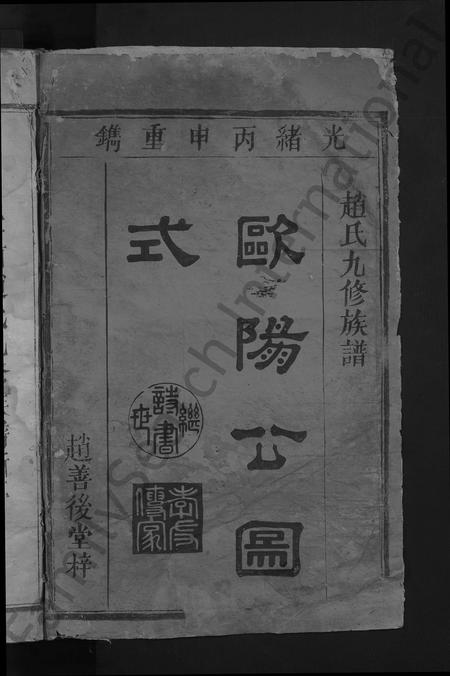 光緒丙申重鐫
趙氏九修族譜
歐陽公圖
式
詩書繼世
孝友傳家
趙善後堂梓
FamilySearch International